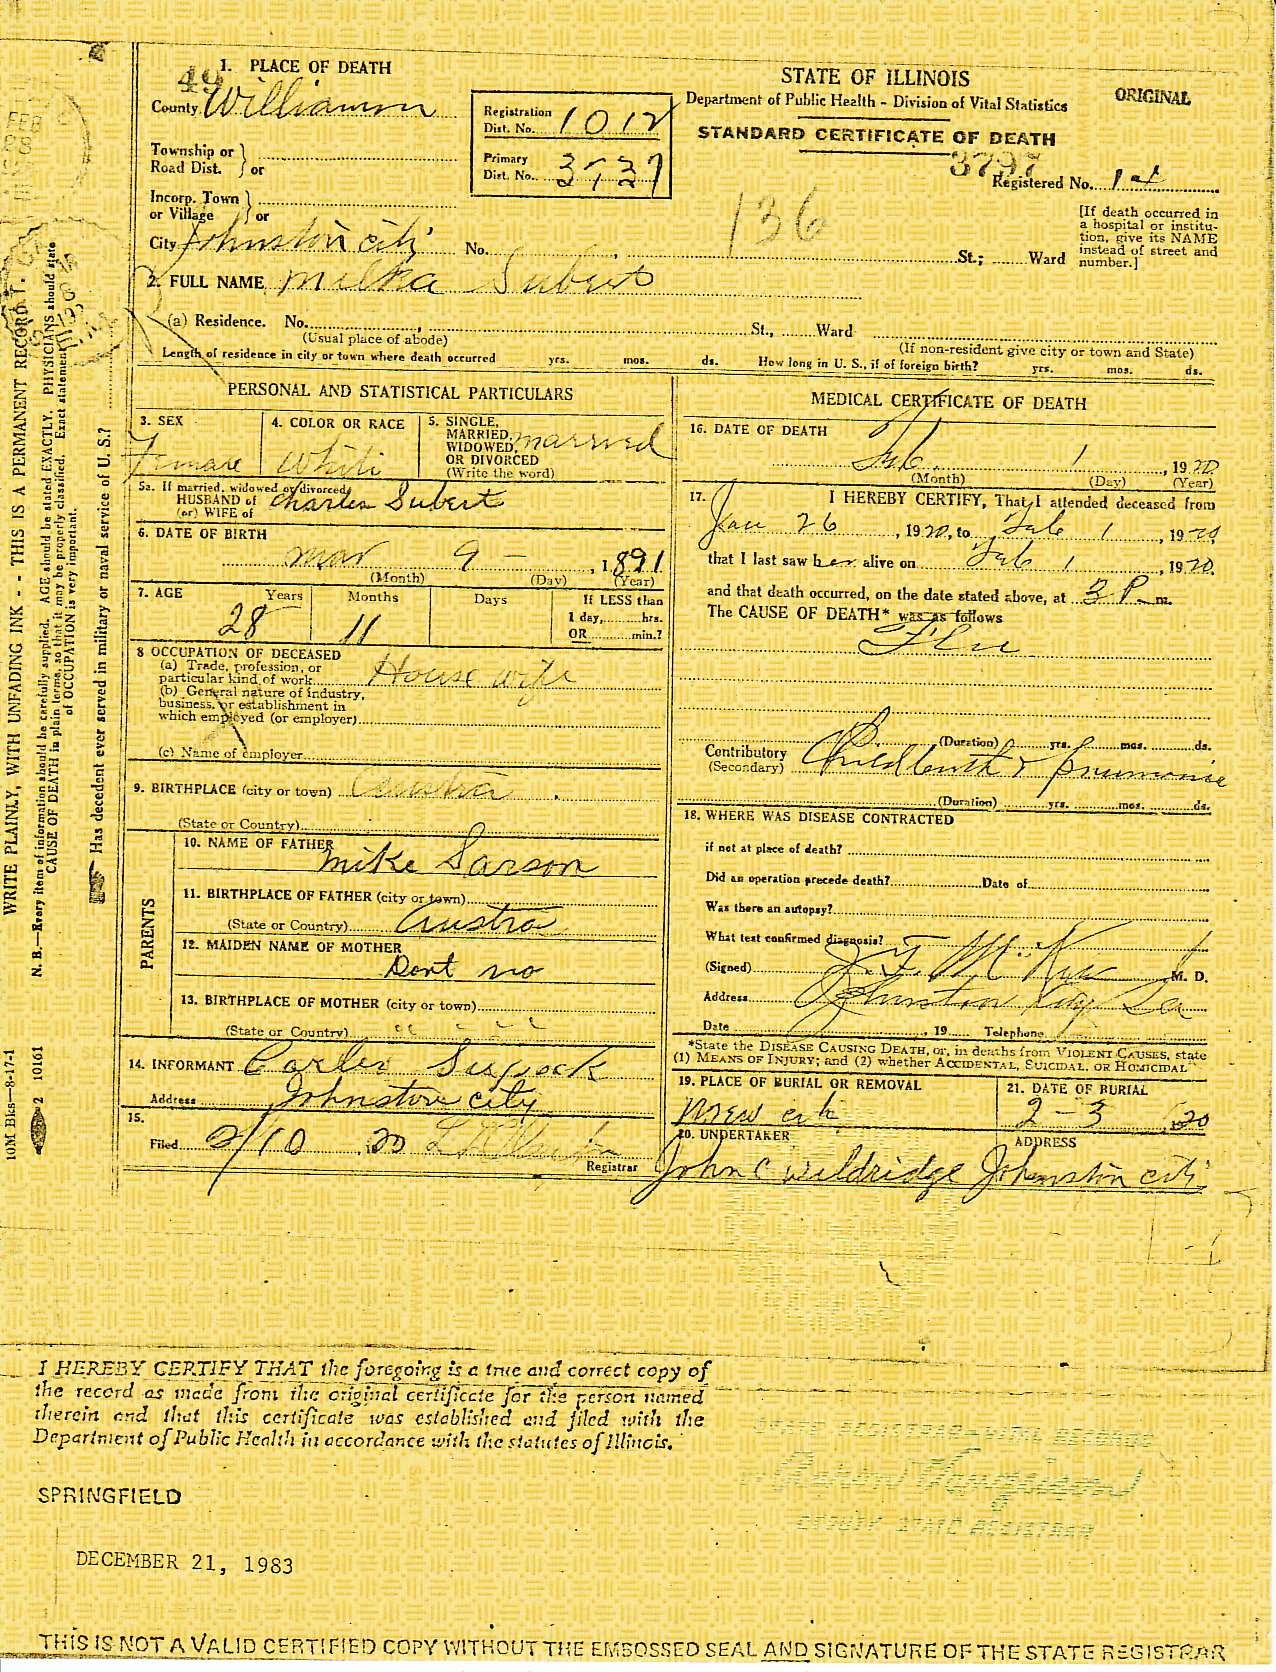 49
1. PLACE OF DEATH
County Williamson
Township or
Road Dist. or
Incorp. Town
or Village or
City Johnston city No. St.; Ward
Registration
Dist. No. 1012
Primary
Dist. No. 3737
STATE OF ILLINOIS
Department of Public Health - Division of Vital Statistics
ORIGINAL
STANDARD CERTIFICATE OF DEATH
3797
Registered No. 14
136
[If death occurred in
a hospital or institu-
tion, give its NAME
instead of street and
number.]
2. FULL NAME Milka Subert
(a) Residence. No. St., Ward
(Usual place of abode) (If non-resident give city or town and State)
Length of residence in city or town where death occurred yrs. mos. ds. How long in U. S., if of foreign birth? yrs. mos. ds.
PERSONAL AND STATISTICAL PARTICULARS
3. SEX
Female
4. COLOR OR RACE
White
5. SINGLE,
MARRIED,
WIDOWED,
OR DIVORCED
(Write the word)
married
5a. If married, widowed or divorced
HUSBAND of
(or) WIFE of
Charles Subert
6. DATE OF BIRTH
mar 9 - , 1891
(Month) (Day) (Year)
7. AGE Years Months Days If LESS than
1 day, hrs.
28 11 OR min.?
8 OCCUPATION OF DECEASED
(a) Trade, profession, or
particular kind of work House wife
(b) General nature of industry,
business, or establishment in
which employed (or employer)
(c) Name of employer
9. BIRTHPLACE (city or town) Austra
(State or Country)
PARENTS
10. NAME OF FATHER
Mike Sarson
11. BIRTHPLACE OF FATHER (city or town)
(State or Country) Austra
12. MAIDEN NAME OF MOTHER
Dont no
13. BIRTHPLACE OF MOTHER (city or town)
(State or Country) " " " "
14. INFORMANT
Address Johnston city
15.
Filed 2/10, 1920
Registrar
MEDICAL CERTIFICATE OF DEATH
16. DATE OF DEATH
Feb. 1, 1920
(Month) (Day) (Year)
17. I HEREBY CERTIFY, That I attended deceased from
Jan 26, 1920, to Feb 1, 1920
that I last saw her alive on Feb 1, 1920
and that death occurred, on the date stated above, at 3 P. m.
The CAUSE OF DEATH* was as follows
Flu
(Duration) yrs. mos. ds.
Contributory
(Secondary) Childbirth & pneumonia
(Duration) yrs. mos. ds.
18. WHERE WAS DISEASE CONTRACTED
if not at place of death?
Did an operation precede death? Date of
Was there an autopsy?
What test confirmed diagnosis?
(Signed) J. F. M. D.
Address Johnston City
Date , 19 Telephone
*State the DISEASE CAUSING DEATH, or, in deaths from VIOLENT CAUSES, state
(1) MEANS OF INJURY; and (2) whether ACCIDENTAL, SUICIDAL, OR HOMICIDAL
19. PLACE OF BURIAL OR REMOVAL
New
21. DATE OF BURIAL
2-3 1920
20. UNDERTAKER ADDRESS
John C Weldridge Johnston city
WRITE PLAINLY, WITH UNFADING INK - - THIS IS A PERMANENT RECORD.
N. B.—Every item of information should be carefully supplied. AGE should be stated EXACTLY. PHYSICIANS should state
CAUSE OF DEATH in plain terms, so that it may be properly classified. Exact statement
of OCCUPATION is very important.
Has decedent ever served in military or naval service of U. S.?
10M Bks—8-17-1
2 10161
I HEREBY CERTIFY THAT the foregoing is a true and correct copy of
the record as made from the original certificate for the person named
therein and that this certificate was established and filed with the
Department of Public Health in accordance with the statutes of Illinois.
SPRINGFIELD
DECEMBER 21, 1983
STATE REGISTRAR—VITAL RECORDS
DEPUTY STATE REGISTRAR
THIS IS NOT A VALID CERTIFIED COPY WITHOUT THE EMBOSSED SEAL AND SIGNATURE OF THE STATE REGISTRAR